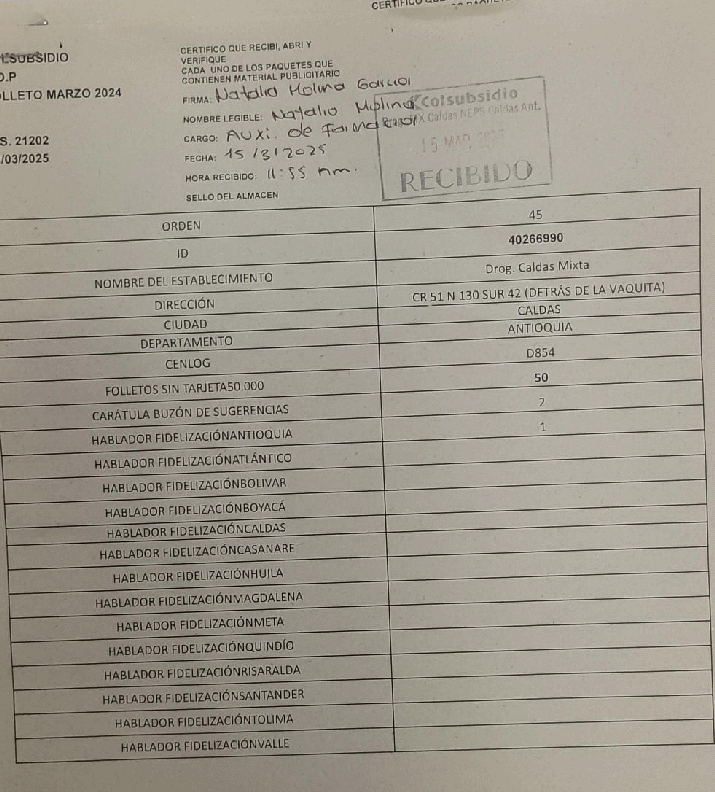 CERTIFICO QUE
LSUBSIDIO
O.P
LLETO MARZO 2024
S. 21202
/03/2025
CERTIFICO QUE RECIBI, ABRI Y
VERIFIQUE
CADA UNO DE LOS PAQUETES QUE
CONTIENEN MATERIAL PUBLICITARIO
FIRMA: Natalia Molina
NOMBRE LEGIBLE: Natalia Molina
CARGO: Auxi. de Farmacia
FECHA: 15/3/2025
HORA RECIBIDO: 11:55 am.
SELLO DEL ALMACEN
Colsubsidio
Caldas Ant.
15 MAR.
RECIBIDO
ORDEN 45
ID 40266990
NOMBRE DEL ESTABLECIMIENTO Drog. Caldas Mixta
DIRECCIÓN CR 51 N 130 SUR 42 (DETRÁS DE LA VAQUITA)
CIUDAD CALDAS
DEPARTAMENTO ANTIOQUIA
CENLOG D854
FOLLETOS SIN TARJETA50.000 50
CARÁTULA BUZÓN DE SUGERENCIAS 2
HABLADOR FIDELIZACIÓNANTIOQUIA 1
HABLADOR FIDELIZACIÓNATLÁNTICO
HABLADOR FIDELIZACIÓNBOLIVAR
HABLADOR FIDELIZACIÓNBOYACÁ
HABLADOR FIDELIZACIÓNCALDAS
HABLADOR FIDELIZACIÓNCASANARE
HABLADOR FIDELIZACIÓNHUILA
HABLADOR FIDELIZACIÓNMAGDALENA
HABLADOR FIDELIZACIÓNMETA
HABLADOR FIDELIZACIÓNQUINDÍO
HABLADOR FIDELIZACIÓNRISARALDA
HABLADOR FIDELIZACIÓNSANTANDER
HABLADOR FIDELIZACIÓNTOLIMA
HABLADOR FIDELIZACIÓNVALLE